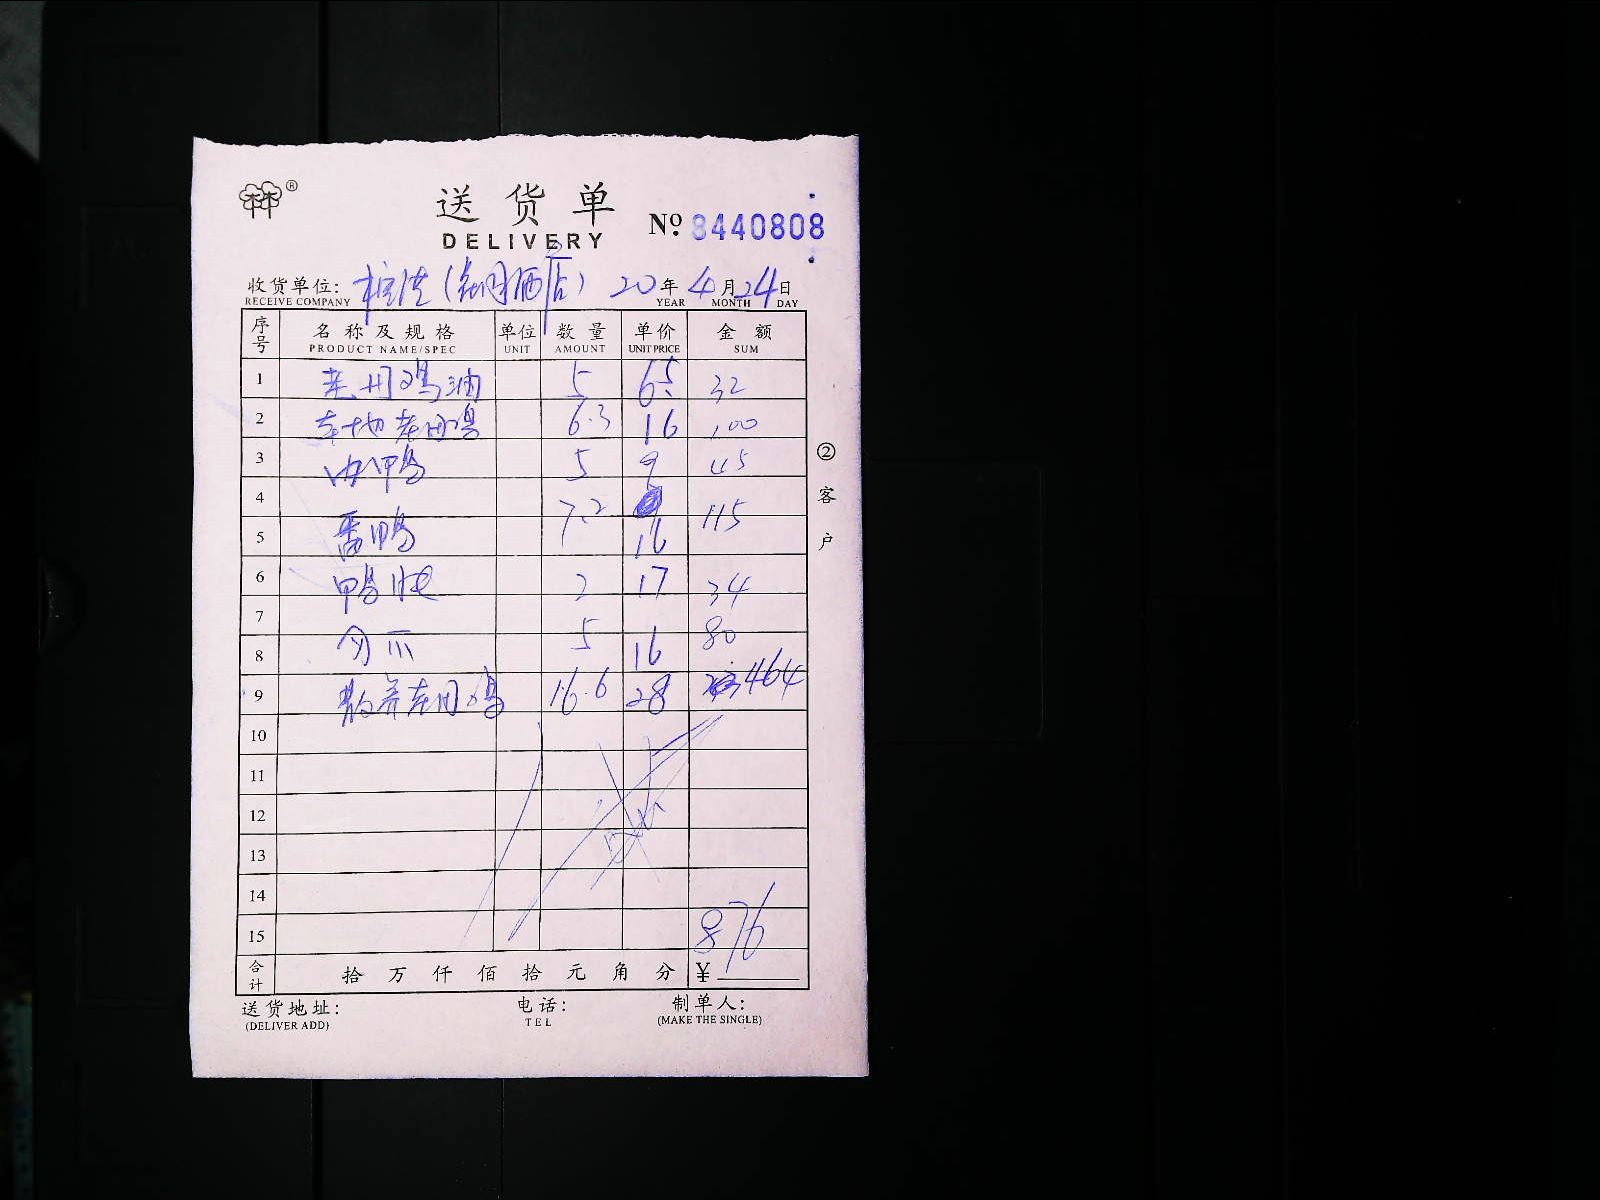 ®
送货单
DELIVERY
№ 8440808
收货单位: 20年4月24日
RECEIVE COMPANY YEAR MONTH DAY
序号 名称及规格 单位 数量 单价 金额
PRODUCT NAME/SPEC UNIT AMOUNT UNIT PRICE SUM
1 鸡油 5 6.5 32
2 本地老母鸡 6.3 16 100
3 鸭 5 9 45
4 7.2 115
5 番鸭 16
6 鸭 2 17 34
7
8 5 16 80
9 散养老母鸡 16.6 28 464
10
11
12
13
14
15 876
合计 拾 万 仟 佰 拾 元 角 分 ¥
送货地址: 电话: 制单人:
(DELIVER ADD) TEL (MAKE THE SINGLE)
②客户